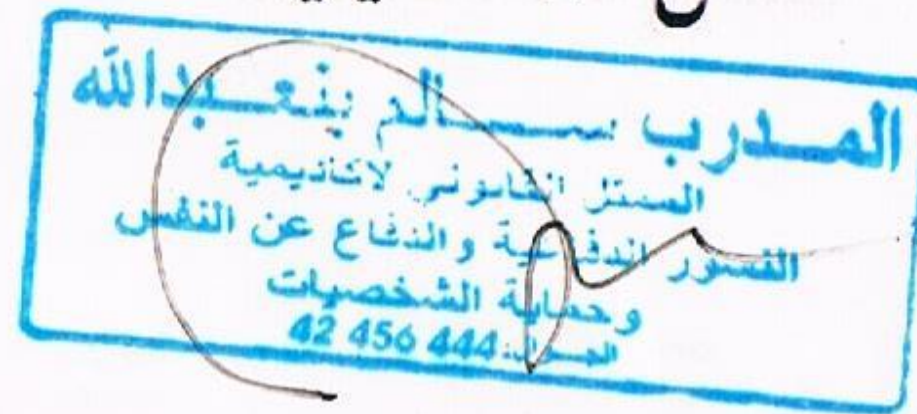 المدرب ســالم بنعـبدالله
الممثل القانوني لأكاديمية
الفنون الدفاعية والدفاع عن النفس
وحماية الشخصيات
الجوال: 444 456 42